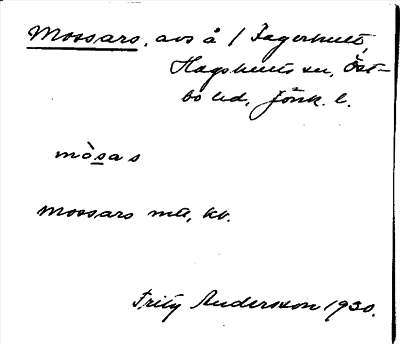 Mossars, avs å / Fagerhult,
Hagshults sn, Öst-
bo hd, Jönk. l.
mò̀sas
Mossars mtl, kv.
Fritz Andersson 1930.